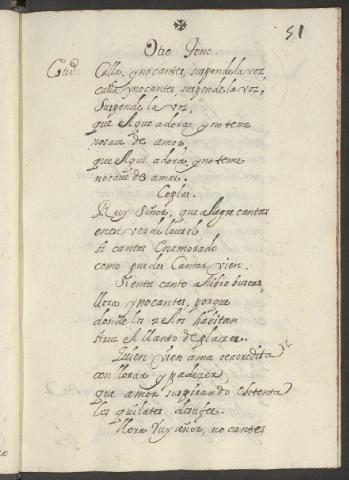 51
Otro Tono.
Calla, y no cantes, suspende la voz
calla y no cantes, suspende la voz,
Suspende la voz,
que el que adora, y no teme
no save de amor,
que el que adora, y no teme
no save de amor.
Coplas.
Ruy Señor, que alegre cantas
en ese verde laurel
si cantas enamorado
como puedes cantar vien.
Si en ta canto alibio buscas
llora y no cantes, porque
donde los zelos habitan
sirva el llanto de plazer.
Quien vien ama se acredita
con llorar, y padezer
que amor suspirando obstenta
los quilates de su fee.
llora Ruy señor, no cantes